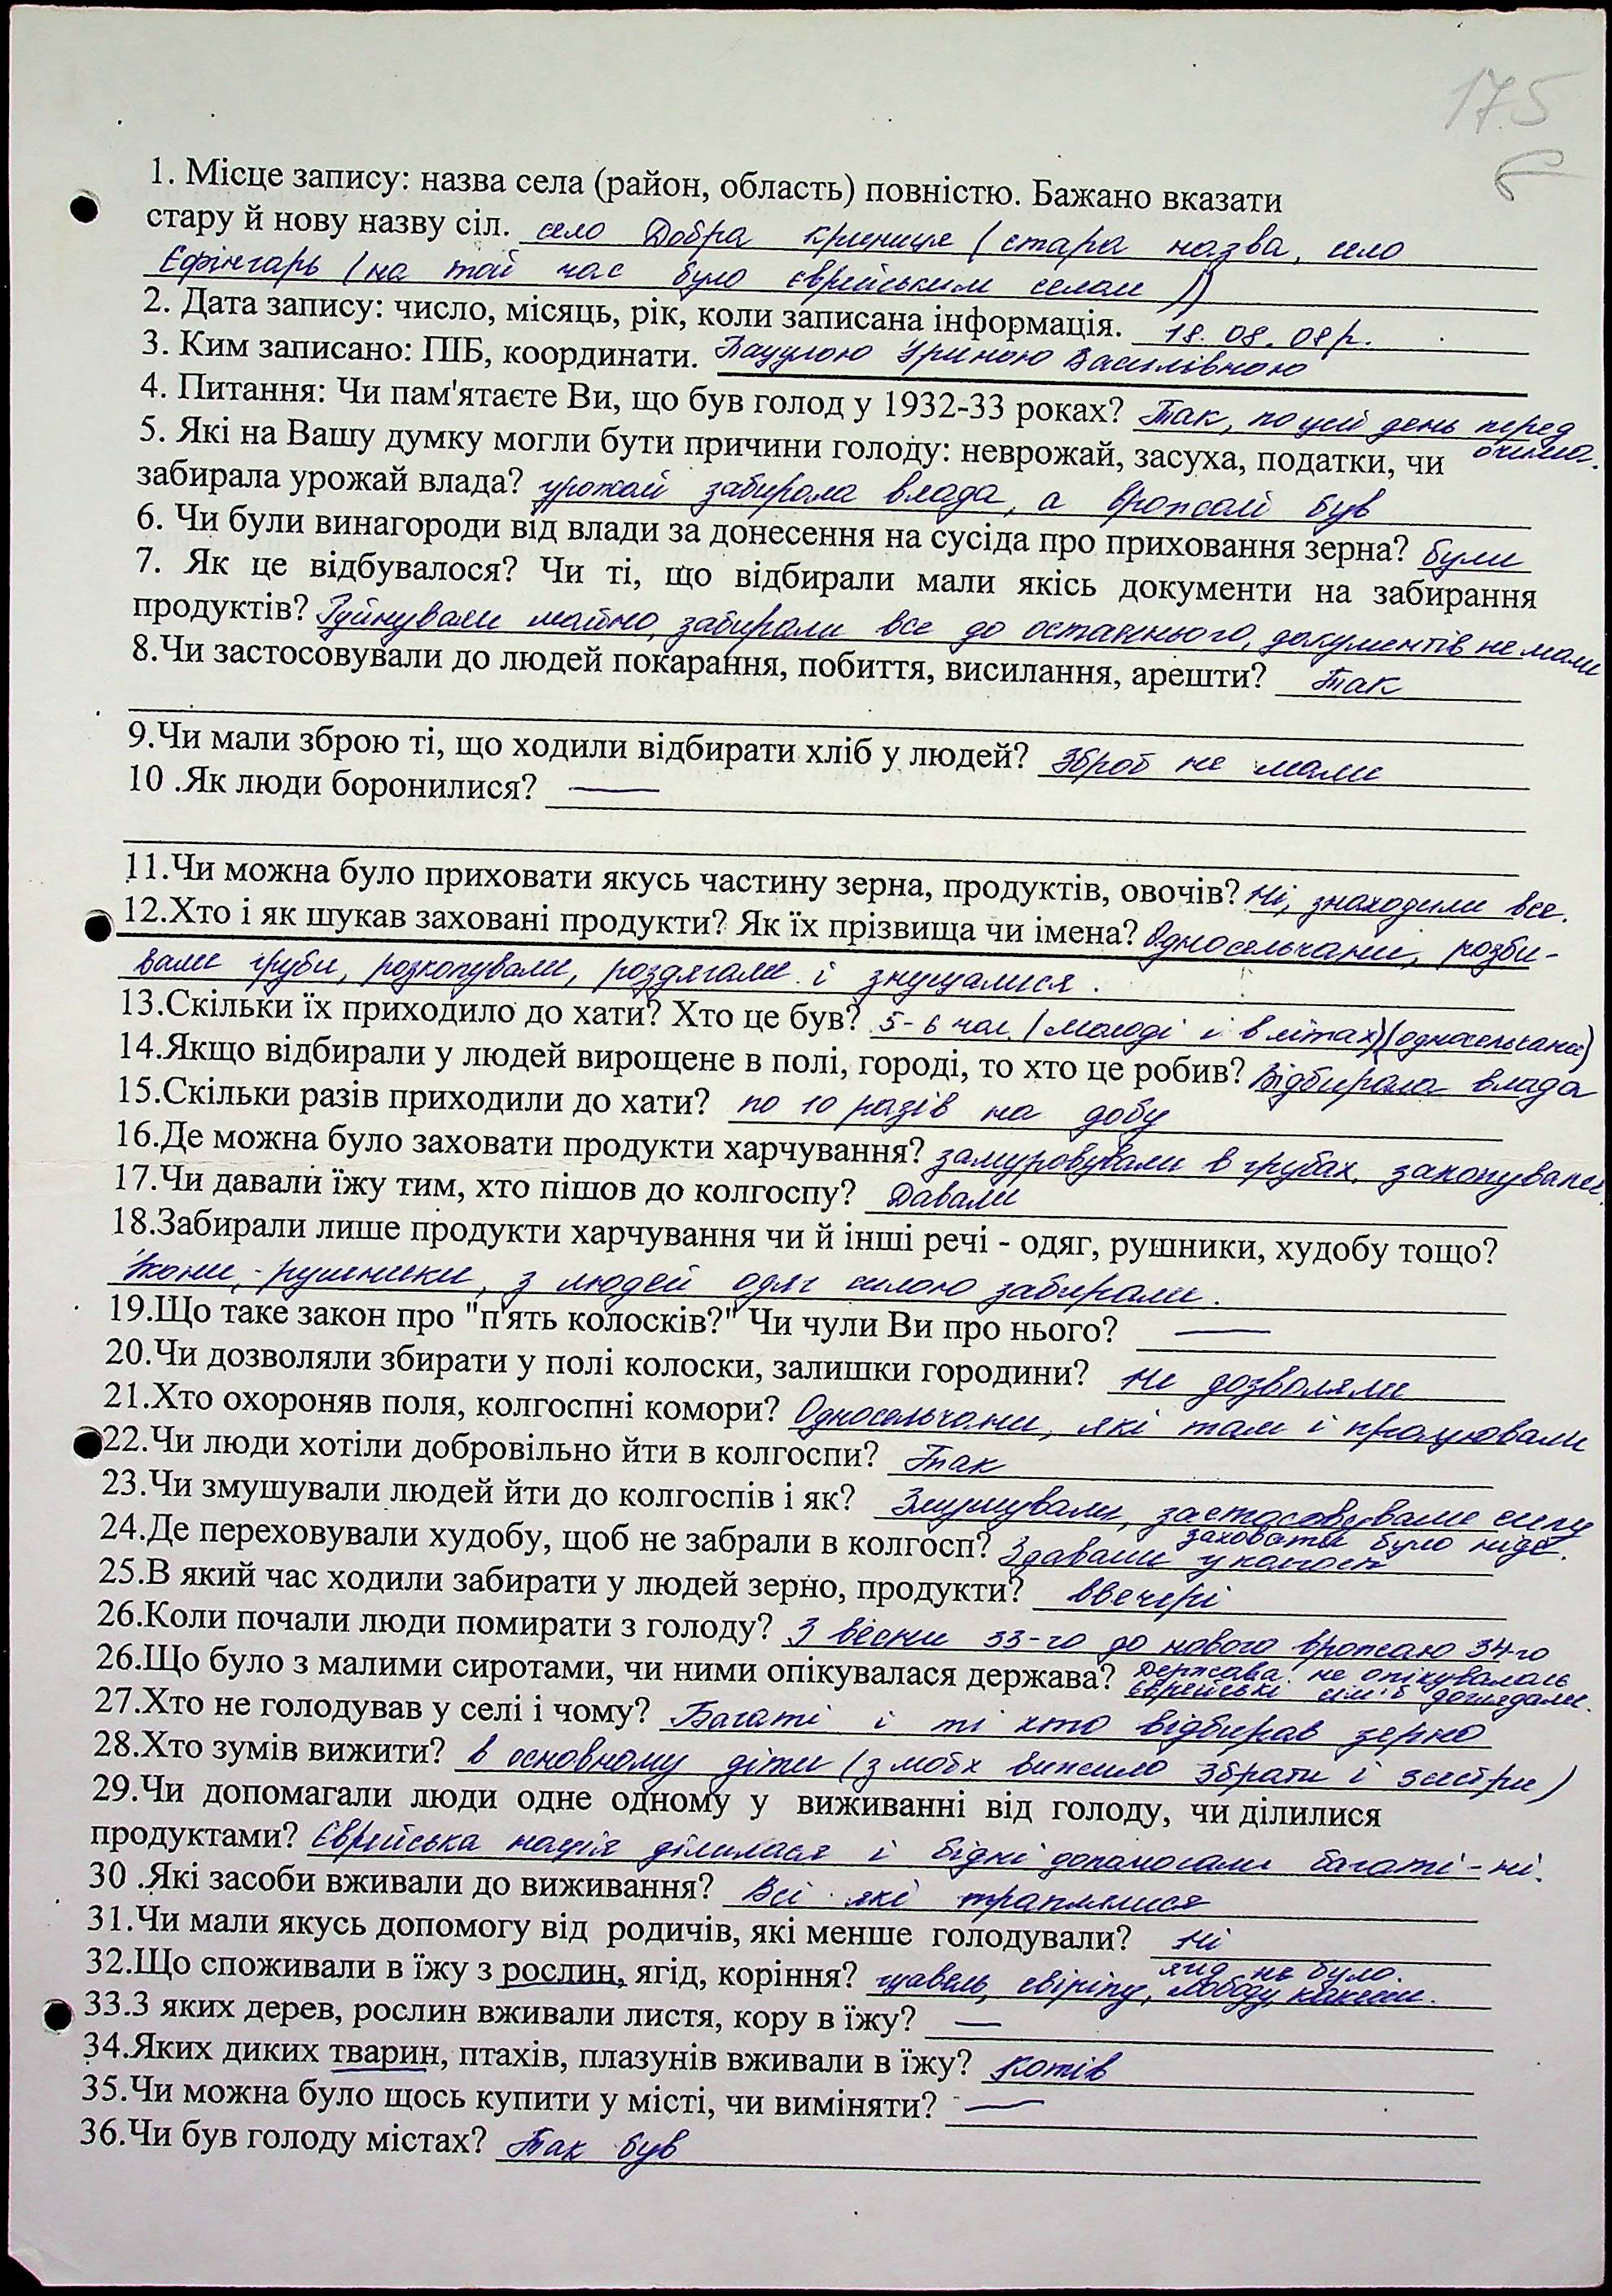 175
1. Місце запису: назва села (район, область) повністю. Бажано вказати
стару й нову назву сіл. село Добра Криниця (стара назва, село
Єфінгарь (на той час було єврейським селом))
2. Дата запису: число, місяць, рік, коли записана інформація. 18.08.08р.
3. Ким записано: ПІБ, координати. Іриною Василівною
4. Питання: Чи пам'ятаєте Ви, що був голод у 1932-33 роках? Так, по цей день перед
очима.
5. Які на Вашу думку могли бути причини голоду: неврожай, засуха, податки, чи
забирала урожай влада? урожай забирала влада, а врожай був
6. Чи були винагороди від влади за донесення на сусіда про приховання зерна? були
7. Як це відбувалося? Чи ті, що відбирали мали якісь документи на забирання
продуктів? Руйнували майно, забирали все до останнього, документів не мали
8.Чи застосовували до людей покарання, побиття, висилання, арешти? Так
9.Чи мали зброю ті, що ходили відбирати хліб у людей? Зброї не мали
10 .Як люди боронилися? —
11.Чи можна було приховати якусь частину зерна, продуктів, овочів? Ні, знаходили все.
12.Хто і як шукав заховані продукти? Як їх прізвища чи імена? Односельчани, розби-
вали груби, розкопували, роздягали і знущалися.
13.Скільки їх приходило до хати? Хто це був? 5-6 чол. (молоді і в літах) (односельчани)
14.Якщо відбирали у людей вирощене в полі, городі, то хто це робив? Відбирала влада
15.Скільки разів приходили до хати? по 10 разів на добу
16.Де можна було заховати продукти харчування? замуровували в грубах, закопували.
17.Чи давали їжу тим, хто пішов до колгоспу? Давали
18.Забирали лише продукти харчування чи й інші речі - одяг, рушники, худобу тощо?
Ікони, рушники, з людей одяг силою забирали.
19.Що таке закон про "п'ять колосків?" Чи чули Ви про нього? —
20.Чи дозволяли збирати у полі колоски, залишки городини? Не дозволяли
21.Хто охороняв поля, колгоспні комори? Односельчани, які там і працювали
22.Чи люди хотіли добровільно йти в колгоспи? Так
23.Чи змушували людей йти до колгоспів і як? Змушували, застосовували силу
24.Де переховували худобу, щоб не забрали в колгосп? заховати було ніде.
Здавали у колгосп
25.В який час ходили забирати у людей зерно, продукти? Ввечері
26.Коли почали люди помирати з голоду? З весни 33-го до нового врожаю 34-го
26.Що було з малими сиротами, чи ними опікувалася держава? Держава не опікувалась
Єврейські сім'ї доглядали.
27.Хто не голодував у селі і чому? Багаті і ті хто відбирав зерно
28.Хто зумів вижити? в основному діти (з моїх вижило 3 брати і 3 сестри)
29.Чи допомагали люди одне одному у виживанні від голоду, чи ділилися
продуктами? Єврейська нація ділилася і бідні допомагали багаті - ні.
30 .Які засоби вживали до виживання? Всі які траплялися
31.Чи мали якусь допомогу від родичів, які менше голодували? Ні
32.Що споживали в їжу з рослин, ягід, коріння? ягід не було.
щавель, свіріпу, лободу,
33.З яких дерев, рослин вживали листя, кору в їжу? —
34.Яких диких тварин, птахів, плазунів вживали в їжу? Котів
35.Чи можна було щось купити у місті, чи виміняти? —
36.Чи був голоду містах? Так був